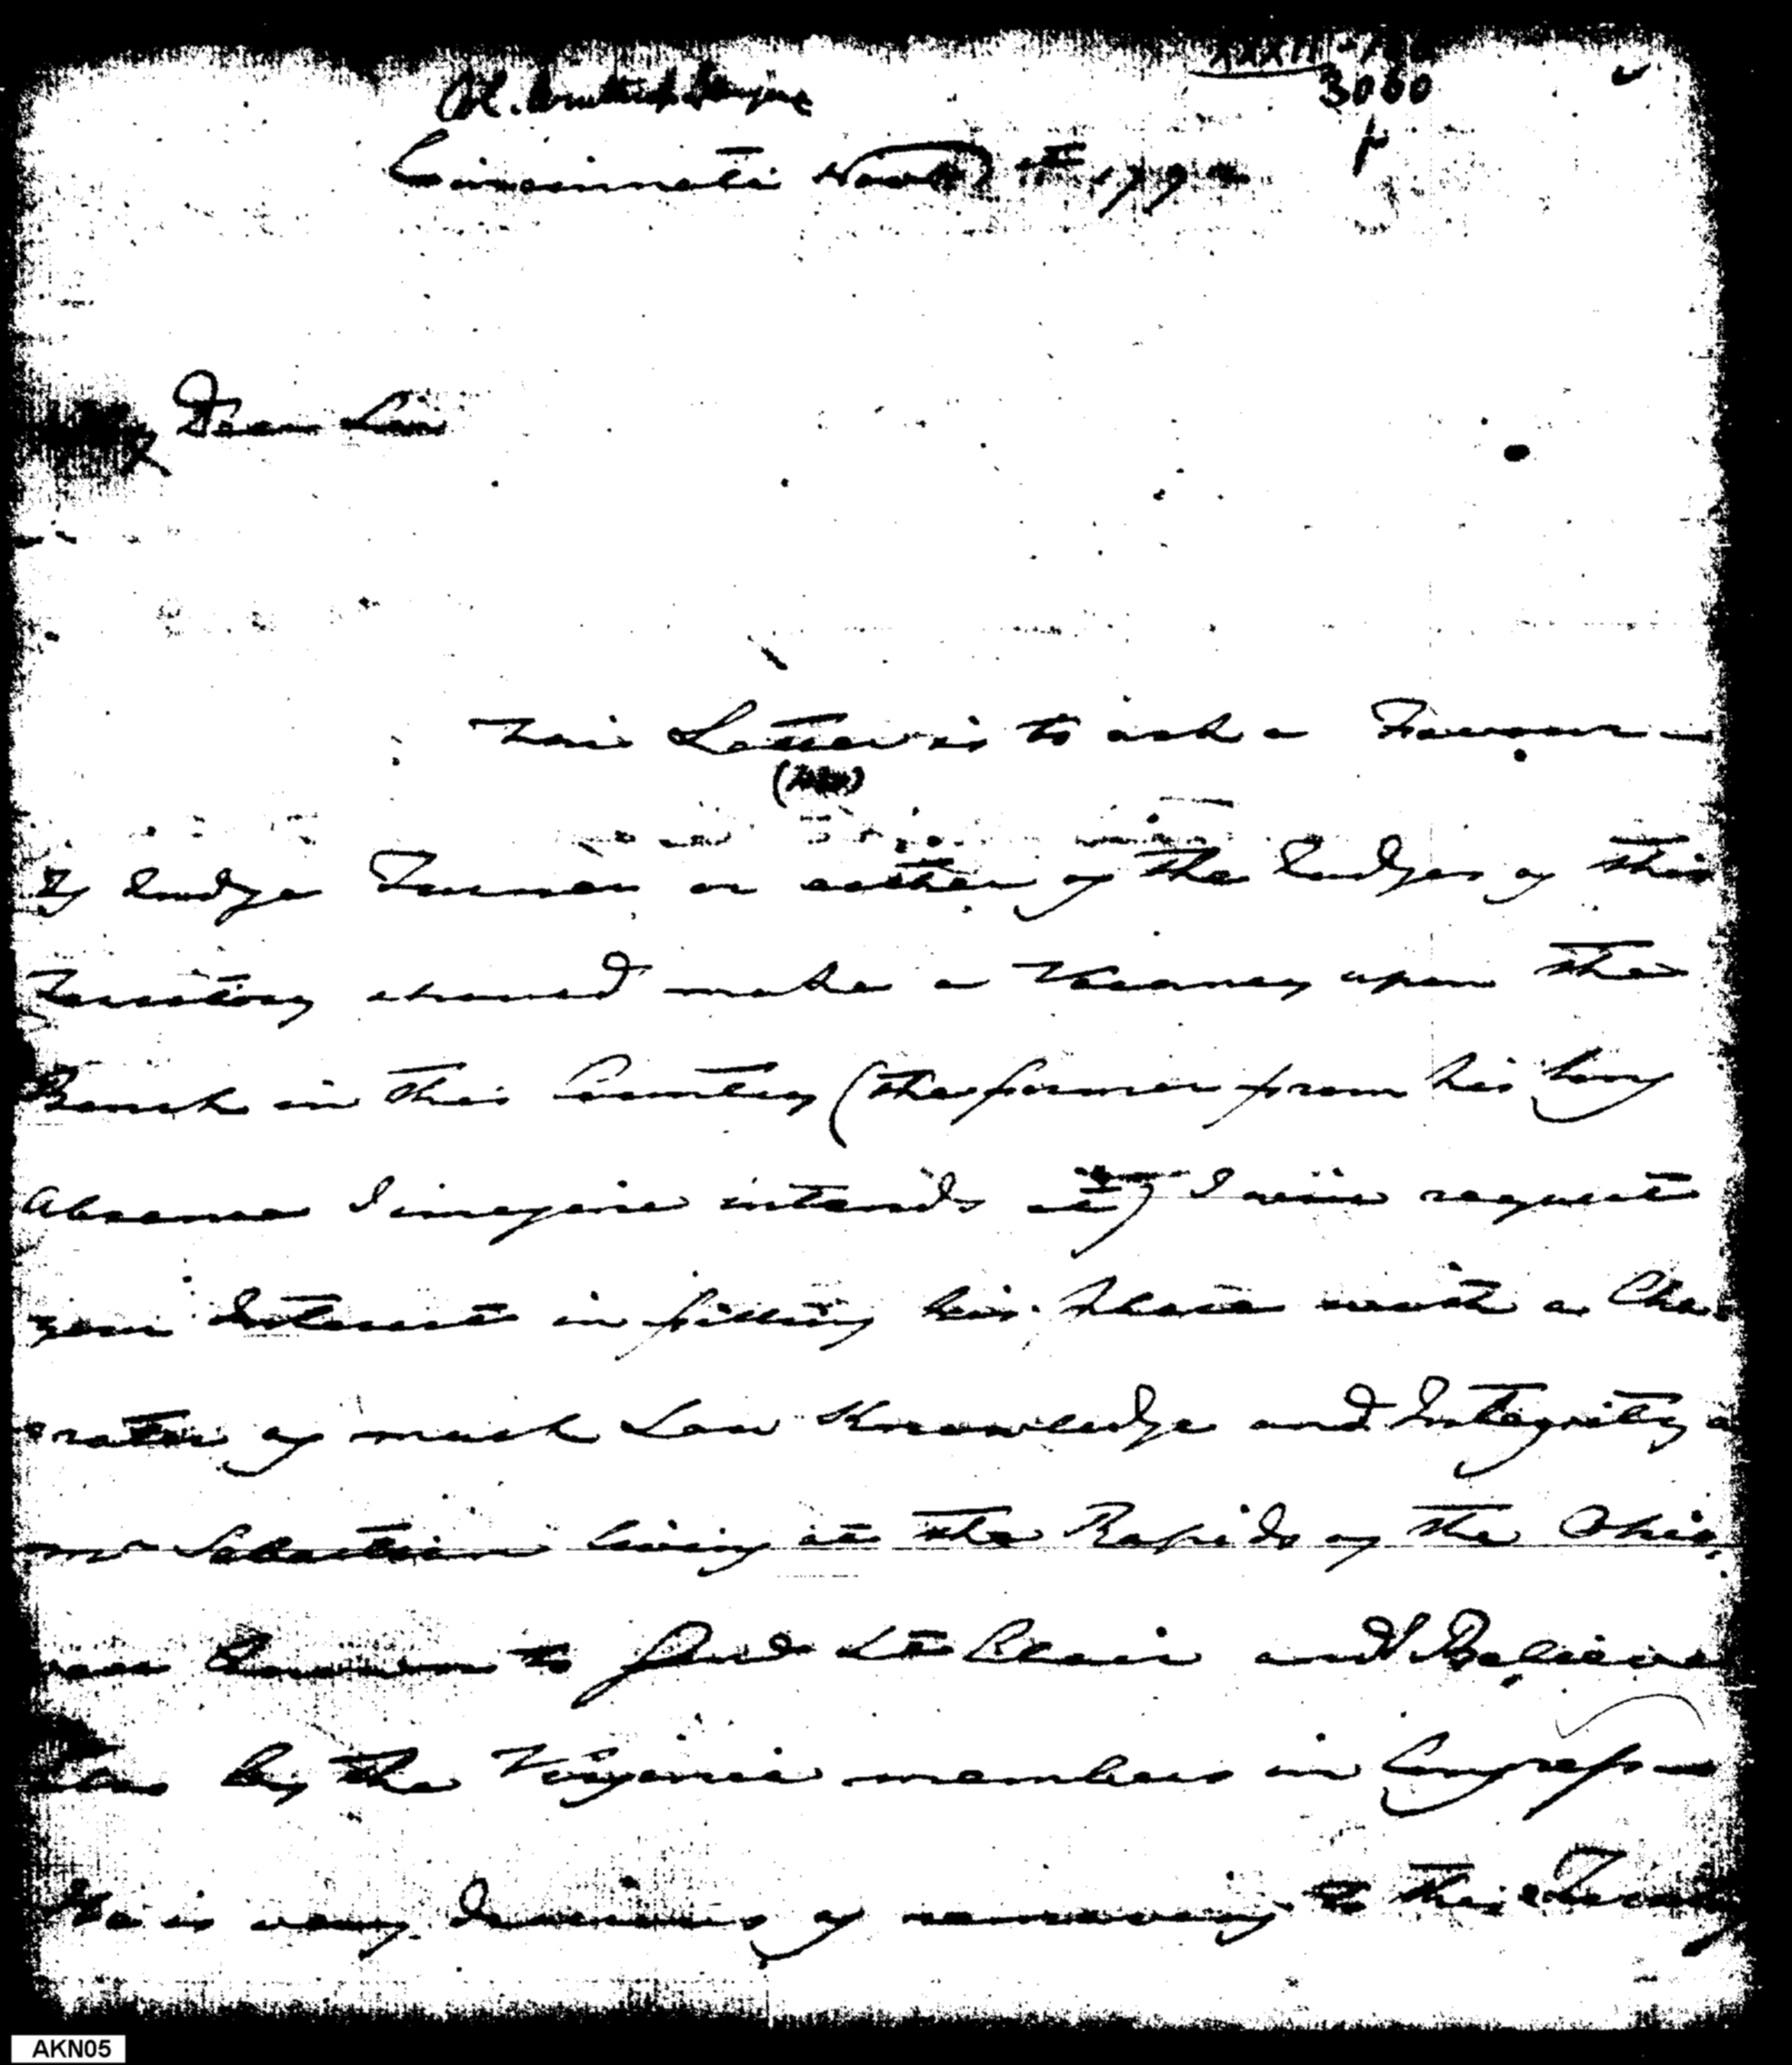 3060
Cincinnati Novbr 7th 179
My Dear Sir
This Letter is to ask a Favour —
If Judge Turner or either of the Judges of this
Territory should make a Vacancy upon the
Bench in this Country (the former from his long
Absence I imagine intends it) I will request
your Interest in filling his Place with a Cha-
racter of much Law Knowledge and Integrity a
Mr Sebastian living at the Rapids of the Ohio
known to Govr St Clair and I Believe
by the Virginia members in Congress —
He is very desirous of removing to this
AKN05